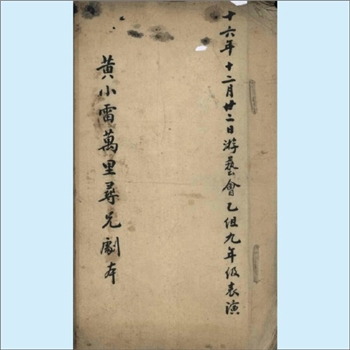 十六年十二月廿二日游藝會乙组九年级表演
黃小雷萬里尋兄劇本